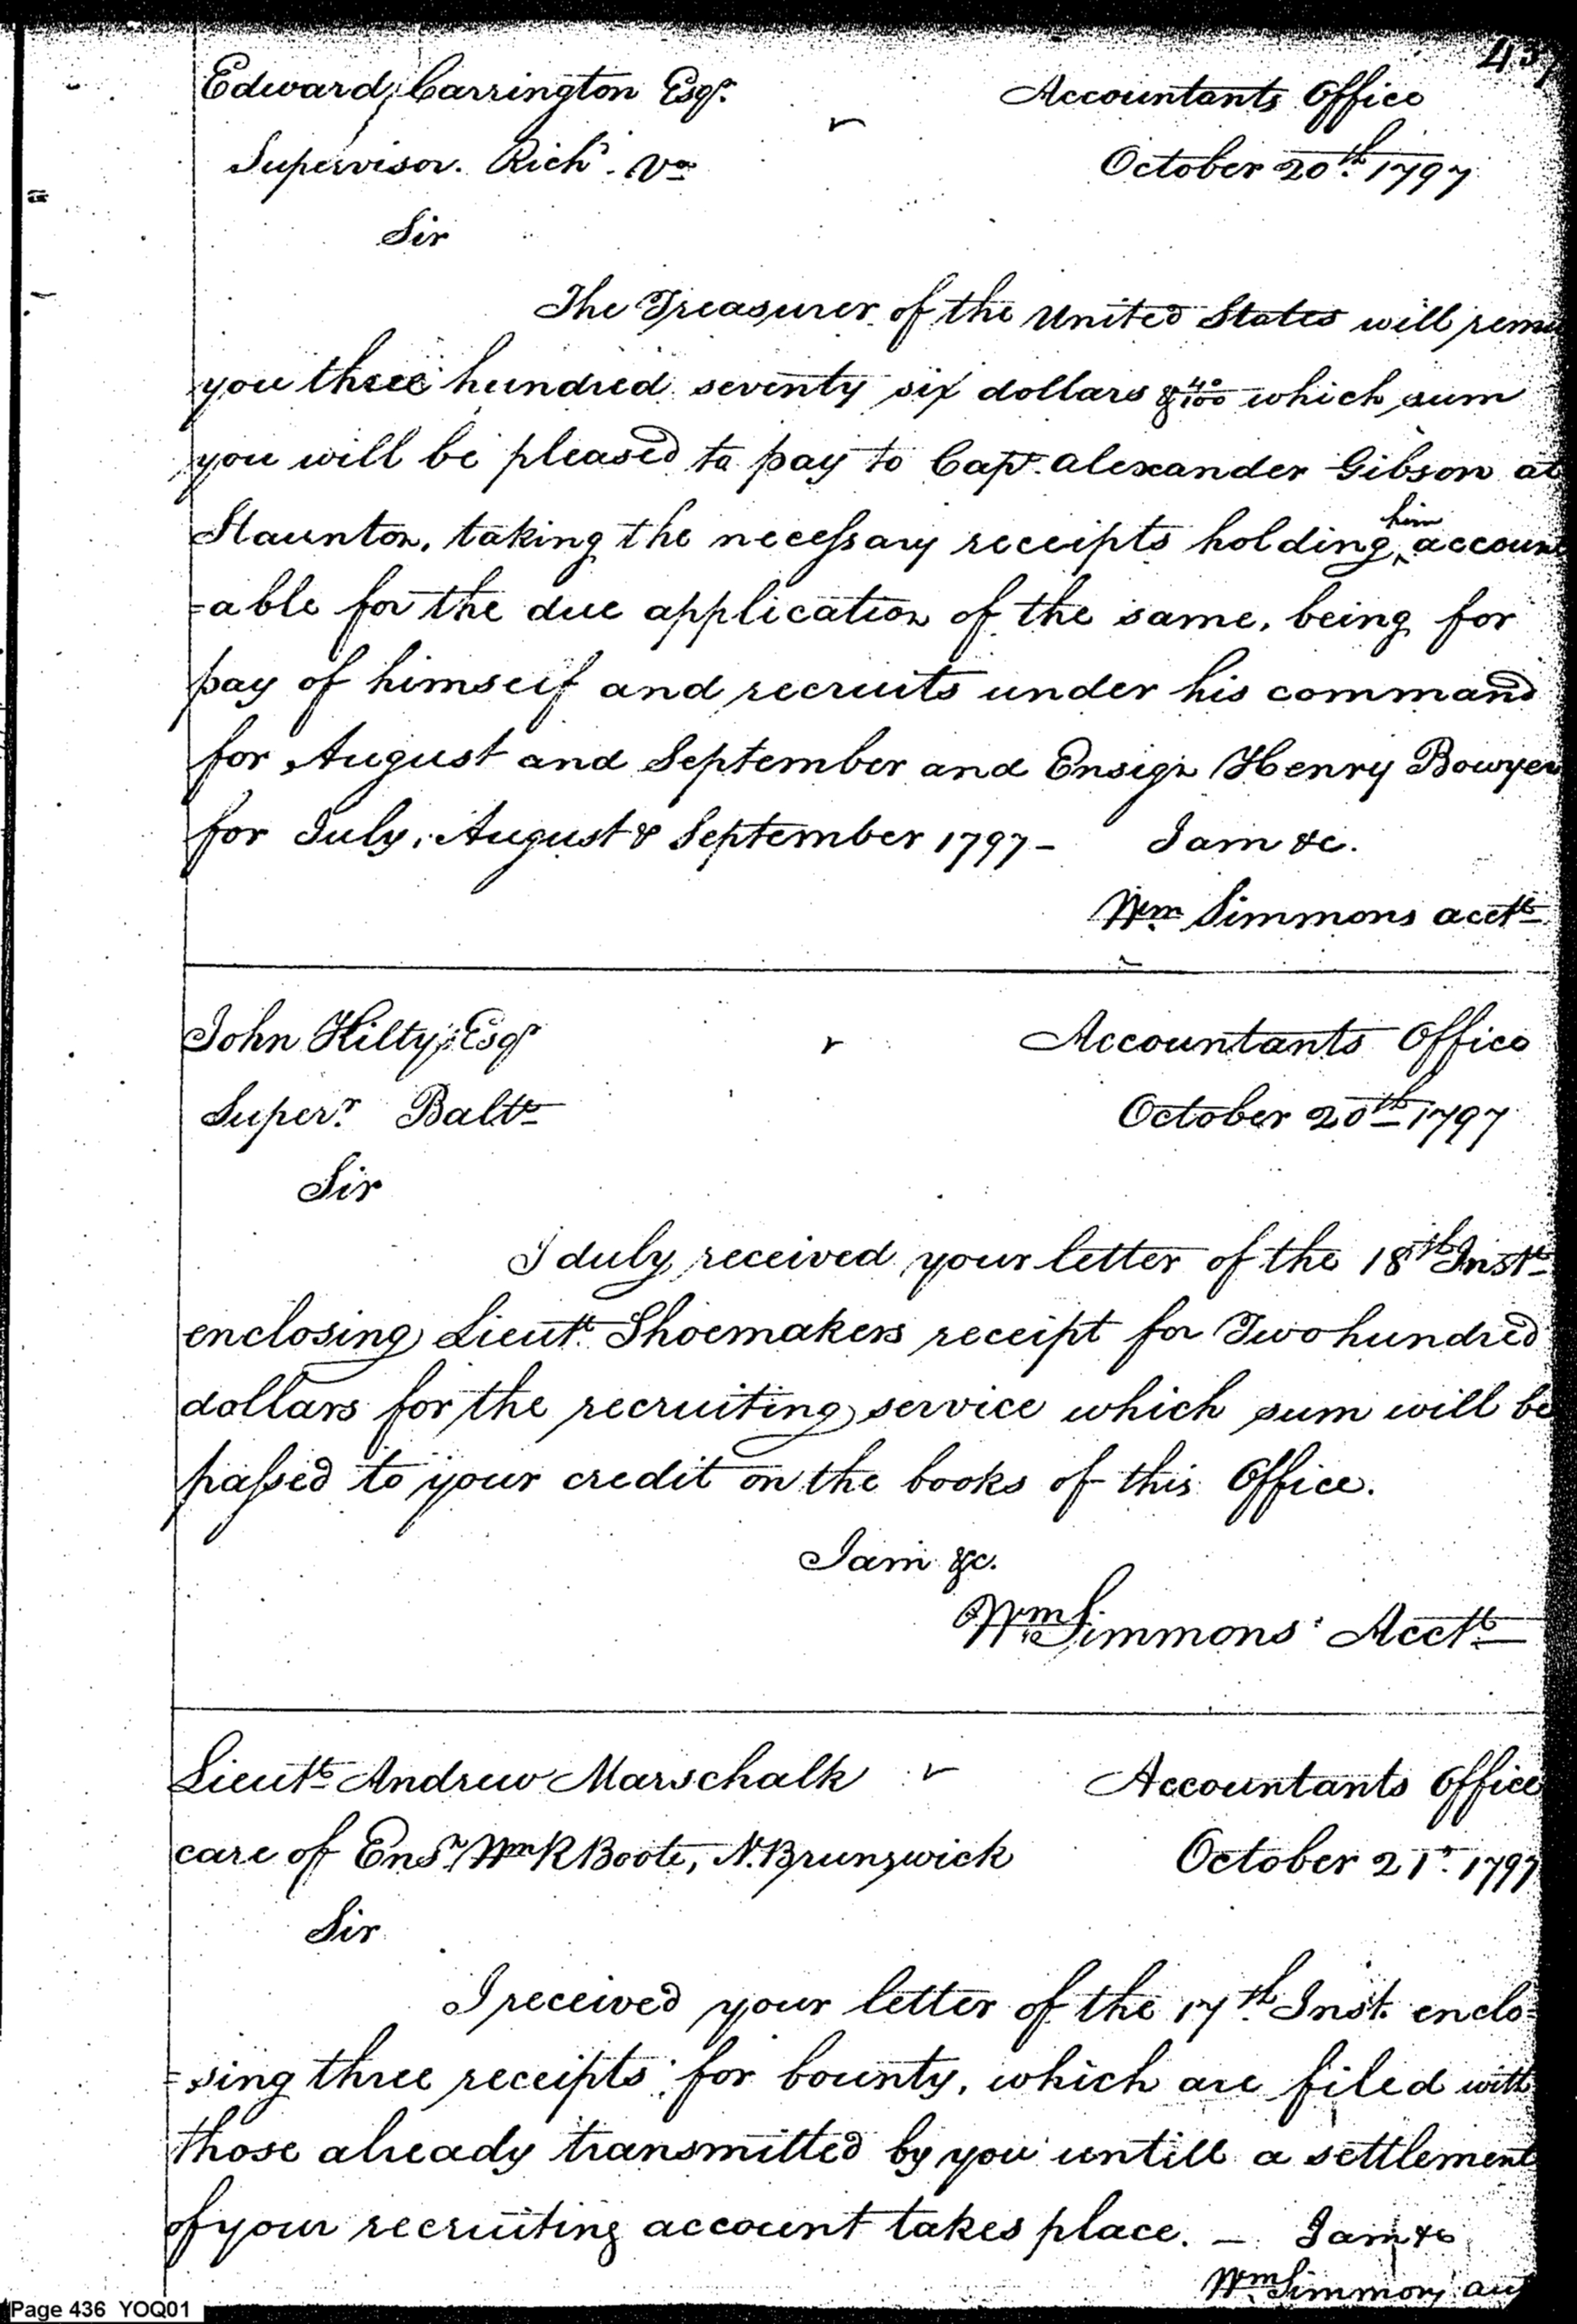 437
Edward Carrington Esqr. Accountants Office
Supervisor. Richd. Va October 20th. 1797
Sir
The Treasurer of the United States will remi
you three hundred seventy six dollars & 40/100 which sum
you will be pleased to pay to Capt. Alexander Gibson at
Staunton, taking the necessary receipts holding him account
=able for the due application of the same, being for
pay of himself and recruits under his command
for August and September and Ensign Henry Bowyer
for July, August & September 1797 - I am &c.
Wm. Simmons acctt
John Kilty Esqr Accountants Office
Superr. Balto October 20th 1797
Sir
I duly received your letter of the 18th Instt
enclosing Lieutt. Shoemakers receipt for Two hundred
dollars for the recruiting service which sum will be
passed to your credit on the books of this Office.
I am &c.
Wm Simmons Acctt
Lieutt Andrew Marschalk Accountants Office
care of Ensn. Wm R Boote, N. Brunswick October 21st. 1797
Sir
I received your letter of the 17th. Inst. enclo=
=sing three receipts for bounty, which are filed with
those already transmitted by you untill a settlement
of your recruiting account takes place. - I am &c
Wm Simmons
Page 436 YOQ01